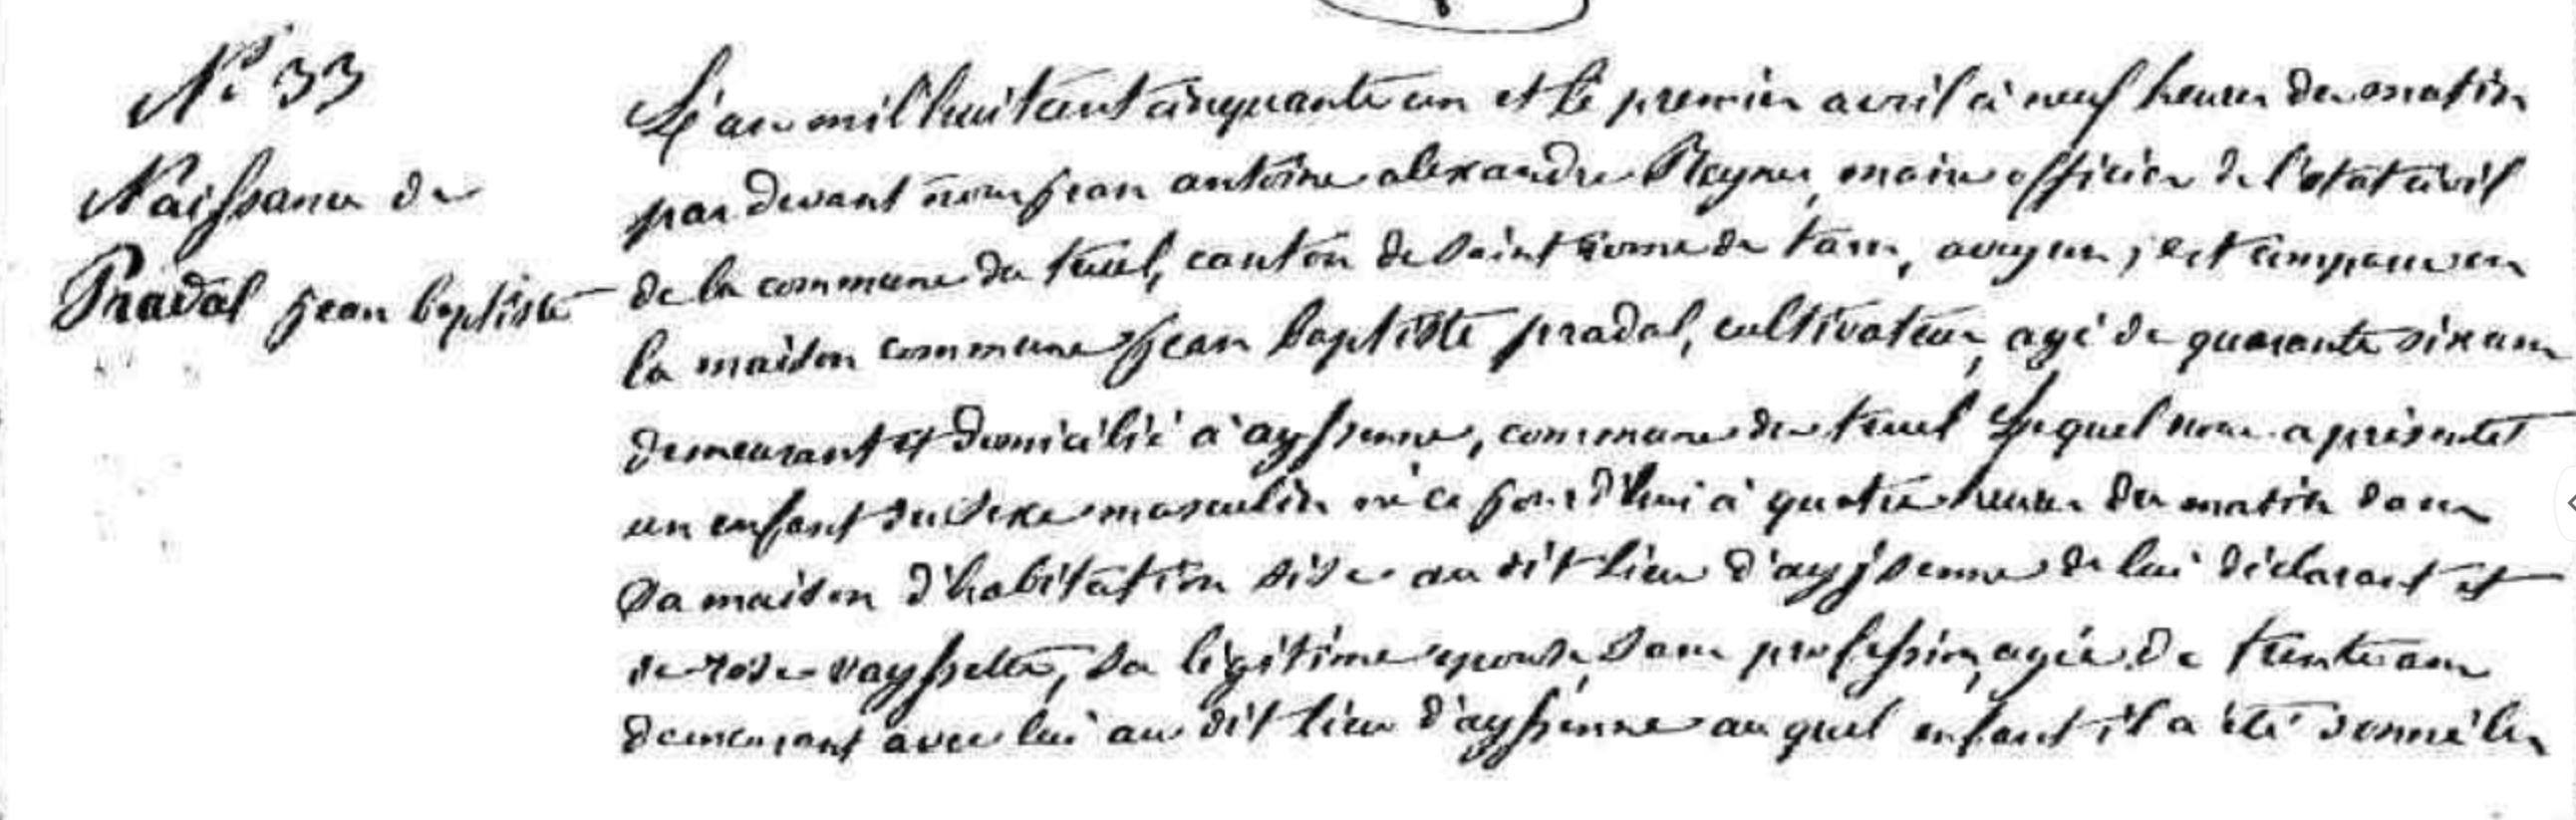 N° 33
Naissance de
Pradal jean baptiste
L'an mil huit cent cinquante un et le premier avril à neuf heures du matin
par devant nous jean antoine alexandre maire officier de l'etat civil
de la commune du truel, canton de Saint Rome de tarn, aveyron, est comparu en
la maison commune jean baptiste pradal, cultivateur, agé de quarante six ans
demeurant et domicilié à ayssenne, commune du truel Lequel nous a présentet
un enfant du sexe masculin né ce jour d'hui à quatre heures du matin dans
Sa maison d'habitation sise au dit lieu d'ayssenne de lui déclarant et
de rose vayssette, sa légitime epouse, sans profession, agée de trente ans
demeurant avec lui au dit lieu d'ayssenne au quel enfant il a été donné les